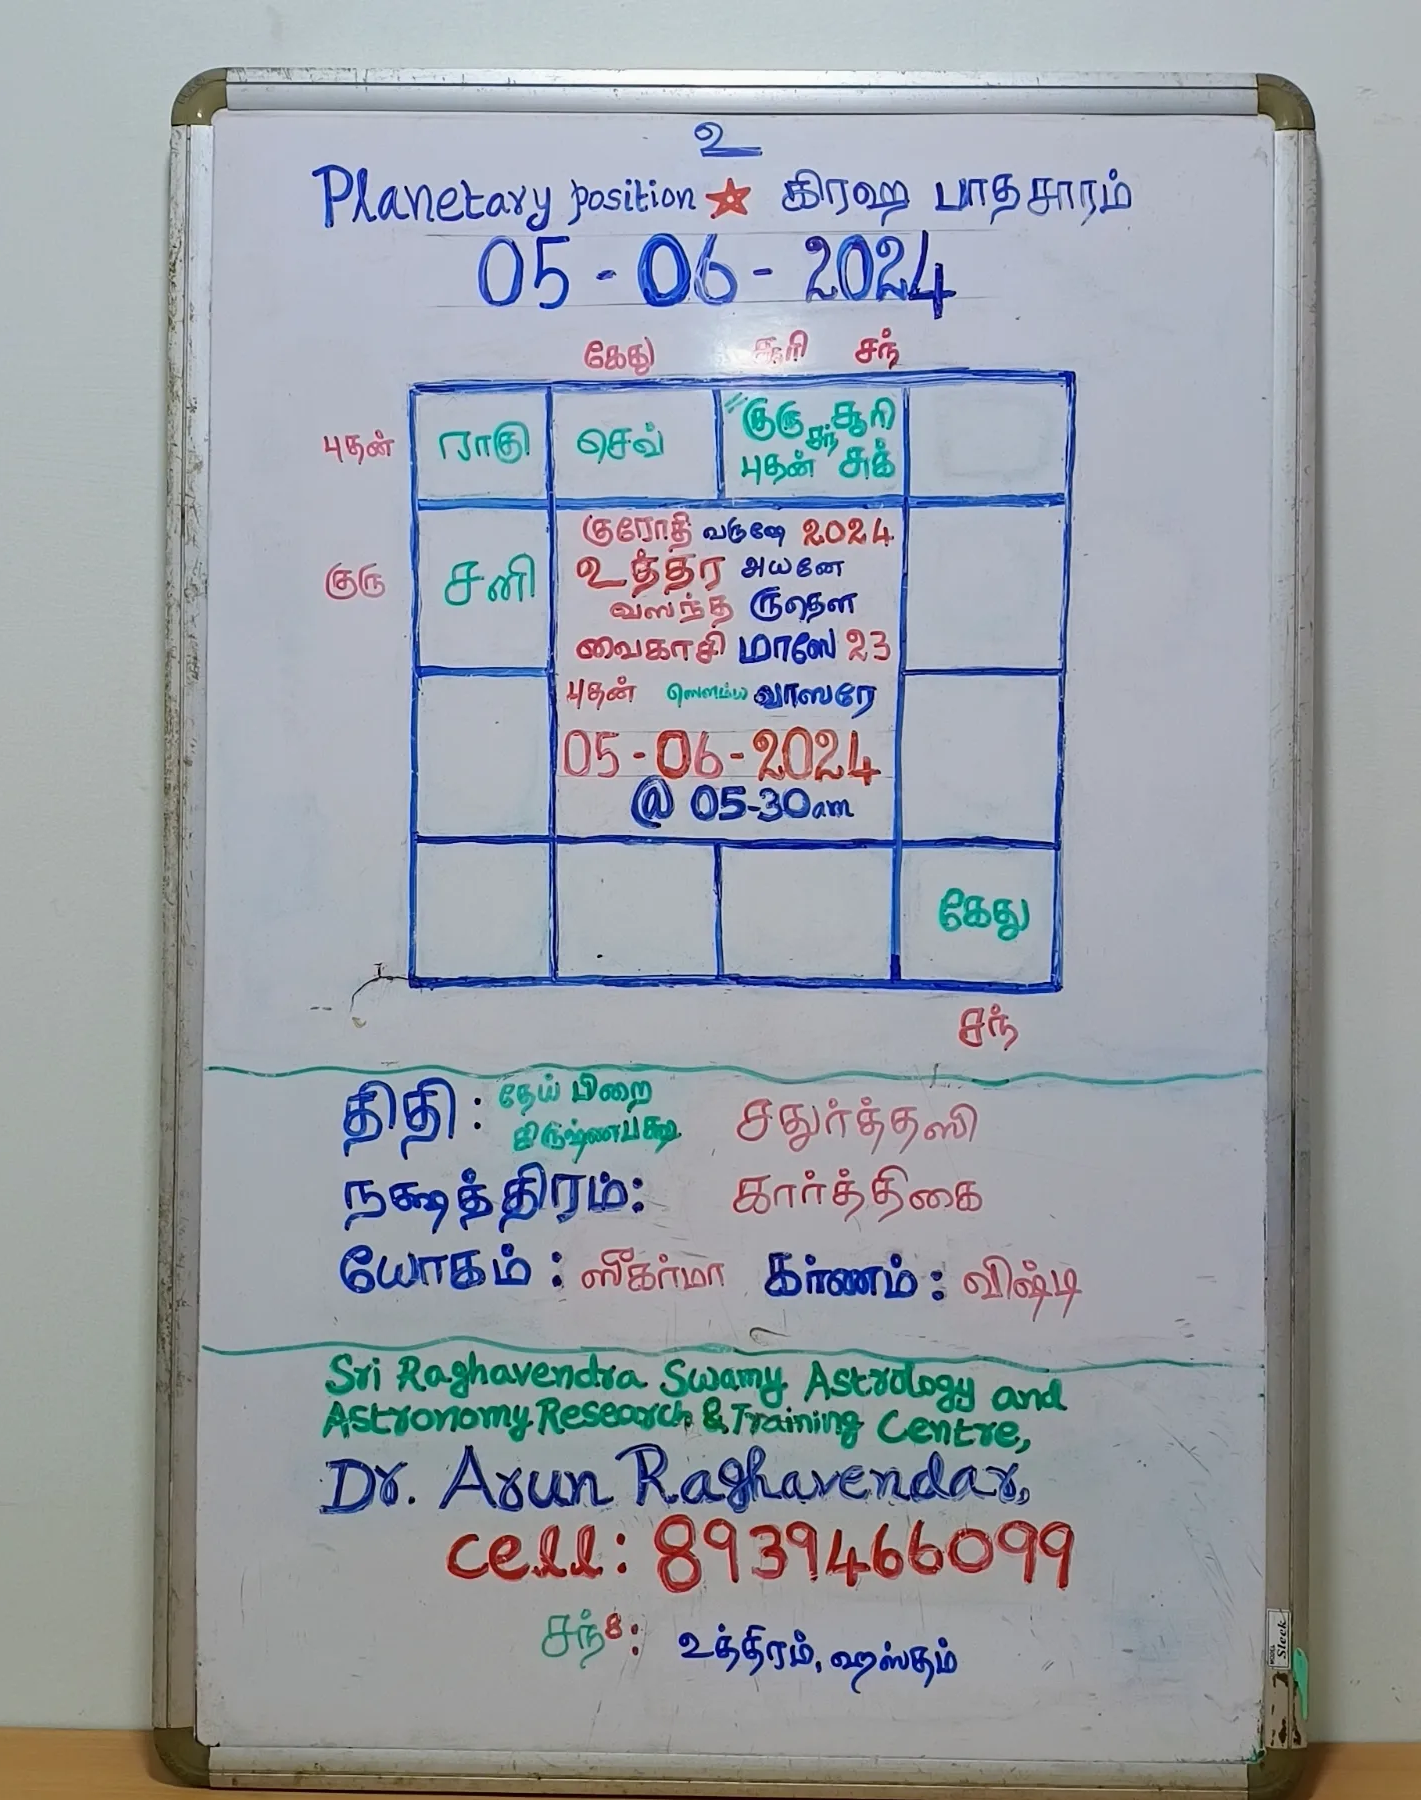 உ
Planetary position ★ கிரஹ பாதசாரம்
05-06-2024
கேது சூரி சந்
புதன் ராகு செவ் குரு சூரி
சந்
புதன் சுக்
குரோதி வருஷே 2024
உத்தர அயனே
குரு சனி
வஸந்த ருதௌ
வைகாசி மாஸே 23
புதன் ஸௌம்ய வாஸரே
05-06-2024
@ 05-30am
கேது
சந்
திதி: தேய் பிறை
கிருஷ்ணபக்ஷ சதுர்த்தஸி
நக்ஷத்திரம்: கார்த்திகை
யோகம்: ஸீகர்மா கர்ணம்: விஷ்டி
Sri Raghavendra Swamy Astrology and
Astronomy Research & Training Centre,
Dr. Arun Raghavendar,
cell: 8939466099
சந்8: உத்திரம், ஹஸ்தம்
MODEL Sleek